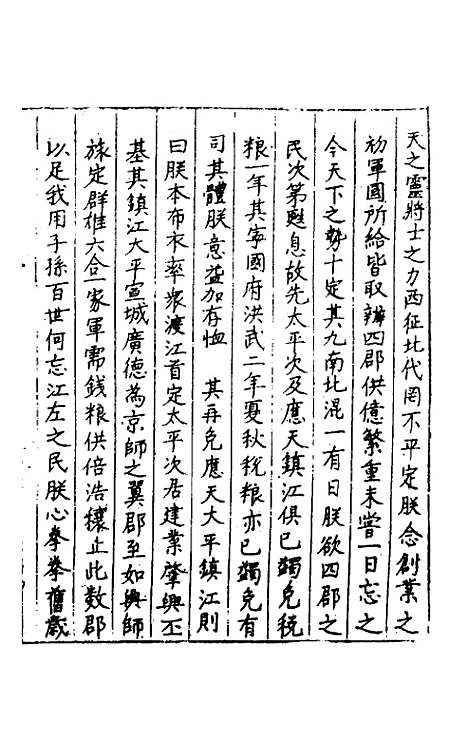 天之靈將士之力西征北伐罔不平定朕念創業之
初軍國所給皆取辦四郡供億繁重未嘗一日忘之
今天下之勢十定其九南北混一有日朕欲四郡之
民次第甦息故先太平次及應天鎮江俱已蠲免稅
粮一年其寧國府洪武二年夏秋稅粮亦已蠲免有
司其體朕意益加存恤　其再免應天太平鎮江則
曰朕本布衣率衆渡江首定太平次居建業肇興丕
基其鎮江太平宣城廣德為京師之翼郡至如興師
旅定群雄六合一家軍需錢粮供倍浩穰止此數郡
以足我用子孫百世何忘江左之民朕心拳拳舊歲